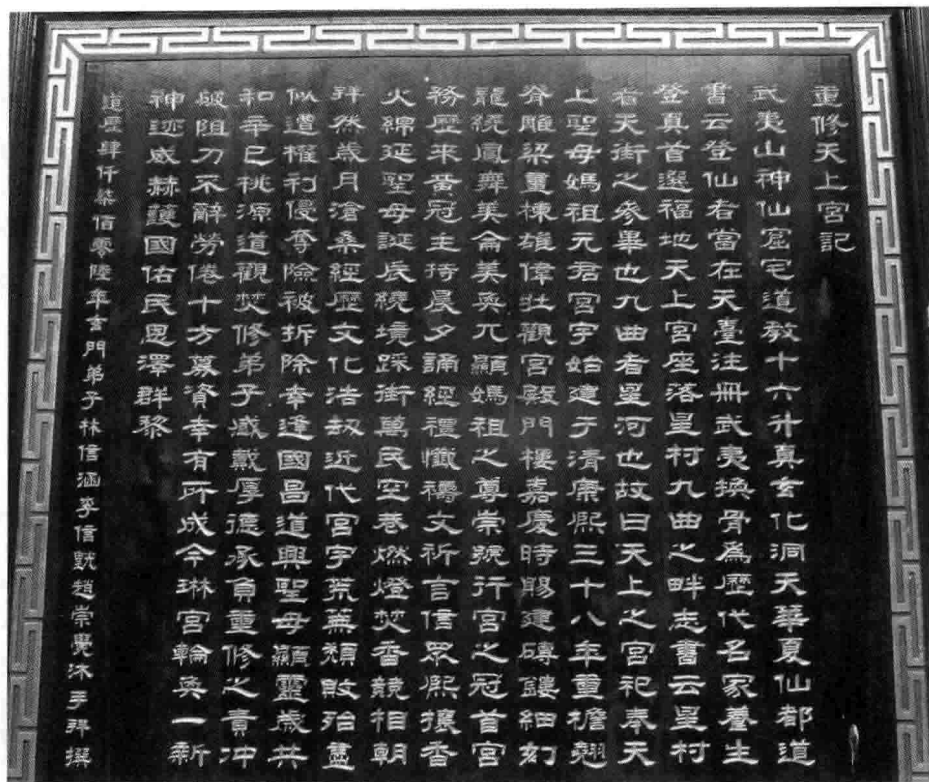 重修天上宮記
武夷山神仙窟宅道教十六升真玄化洞天華夏仙都道
書云登仙者當在天臺注冊武夷換骨爲歷代名家養生
登真首選福地天上宮座落星村九曲之畔志書云星村
者天街之參畢也九曲者星河也故曰天上之宮祀奉天
上聖母媽祖元君宮宇始建于清康熙三十八年重檐翹
脊雕梁畫棟雄偉壯觀宮殿門樓嘉慶時賜建磚鏤細刻
龍繞鳳舞美侖美奐兀顯媽祖之尊崇號行宮之冠首宮
務歷來黃冠主持晨夕誦經禮懺禱文祈言信眾熙攘香
火綿延聖母誕辰繞境踩街萬民空巷燃燈焚香競相朝
拜然歲月滄桑經歷文化浩劫近代宮宇荒蕪頹敗殆盡
似遭權利侵奪險被拆除幸逢國昌道興聖母顯靈歲共
和辛巳桃源道觀焚修弟子感戴厚德承負重修之責冲
破阻力不辭勞倦十方募資幸有所成今琳宮輪奐一新
神迹威赫護國佑民恩澤群黎
道歷肆仟柒佰零陸年玄門弟子林信涵李信觀趙崇覺沐手拜撰